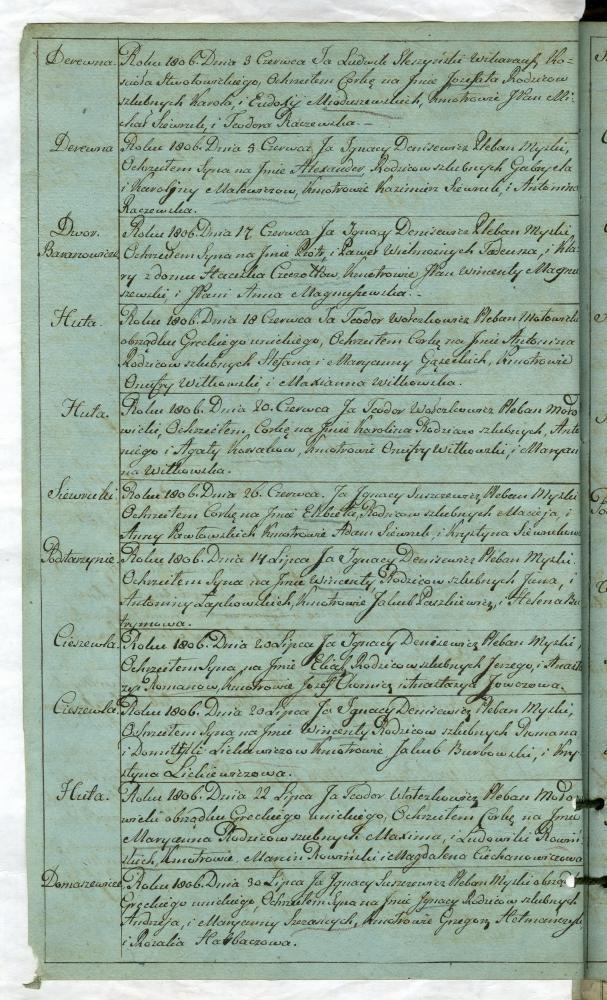 Derewna. Roku 1806. Dnia 3 Czerwca Ja Ludwik
Kościoła Stwołowickiego, Ochrzciłem Corkę na Jmie Jozefata Rodzicow
szlubnych Karola, i Eudoxij Mioduszewskich, Kmotrowie JPan Mi-
chał Siewruk, i Teodora Raczewska.
Derewna Roku 1806. Dnia 5 Czerwca, Ja Jgnacy Denisewicz Pleban Myski,
Ochrzciłem Syna na Jmie Alexander, Rodzicow szlubnych Gabryela
i Karoliny Małowiczow, Kmotrowie Kazimierz Siewruk, i Antonina
Raczewska.
Dwor Roku 1806. Dnia 17 Czerwca Ja Jgnacy Denisewicz Pleban Myski,
Baranowicze Ochrzciłem Syna na Jmie Piotr, i Paweł Wielmożnych Tadeusza, i Kla-
ry z domu Czeczottow, Kmotrowie JPan Wincenty Magnu-
szewski, i JPani Anna Magnuszewska.
Huta. Roku 1806. Dnia 18 Czerwca Ja Teodor Wołczkowicz Pleban Mołowicki
obrządku Greckiego unickiego, Ochrzciłem Corkę na Jmie Antonina
Rodzicow szlubnych Stefana, i Maryanny Gąseckich, Kmotrowie
Onufry Witkowski, i Maxianna Witkowska.
Huta. Roku 1806. Dnia 20. Czerwca Ja Teodor Wołczkowicz Pleban Moło-
wicki, Ochrzciłem, Corkę na Jmie Karolina Rodzicow szlubnych, Anto-
niego i Agaty Kmotrowie Onufry Witkowski, i Maryan-
na Witkowska.
Siewruki Roku 1806. Dnia 26. Czerwca. Ja Jgnacy Suszczewicz Pleban Myski
Ochrzciłem Corkę na Jmie Elżbieta, Rodzicow szlubnych Macieja, i
Anny Pawłowskich Kmotrowie Adam Siewruk, i Krystyna Siewrukowa
Podstarzynie. Roku 1806. Dnia 14 Lipca Ja Jgnacy Denisewicz Pleban Myski.
Ochrzciłem Syna na Jmie Wincenty, Rodzicow szlubnych Jana, i
Antoniny Łapkowskich, Kmotrowie Jakub Paszkiewicz, i Helena Bu-
trymowa.
Cieszewla. Roku 1806. Dnia 20 Lipca Ja Jgnacy Denisewicz Pleban Myski,
Ochrzciłem Syna, na Jmie Eliasz Rodzicow szlubnych Jerzego, i Anasta-
zyi Romanow, Kmotrowie Jozef Chomicz i Anastazya Jowczowa.
Cieszewle. Roku 1806. Dnia 20 Lipca Ja Jgnacy Denisewicz Pleban Myski,
Ochrzciłem Syna na Jmie Wincenty Rodzicow szlubnych Romana
i Domicelli Lickiewiczow Kmotrowie Jakub Burbowski, i Kry-
styna Lickiewiczowa.
Huta. Roku 1806. Dnia 22 Lipca Ja Teodor Wołczkowicz Pleban Moło-
wicki obrządku Greckiego unickiego, Ochrzciłem Corkę na Jmie
Maryanna Rodzicow szlubnych Maxima, i Ludowiki Rowiń-
skich, Kmotrowie, Marcin Rowiński i Magdalena Ciechanowiczowa
Domaszewicze Roku 1806. Dnia 30 Lipca Ja Jgnacy Suszczewicz Pleban Myski obrządku
Greckiego unickiego Ochrzciłem Syna na Jmie Jgnacy Rodzicow szlubnych
Andrzeja, i Maryanny Kmotrowie Grzegorz
i Rozalia Harbaczowa.